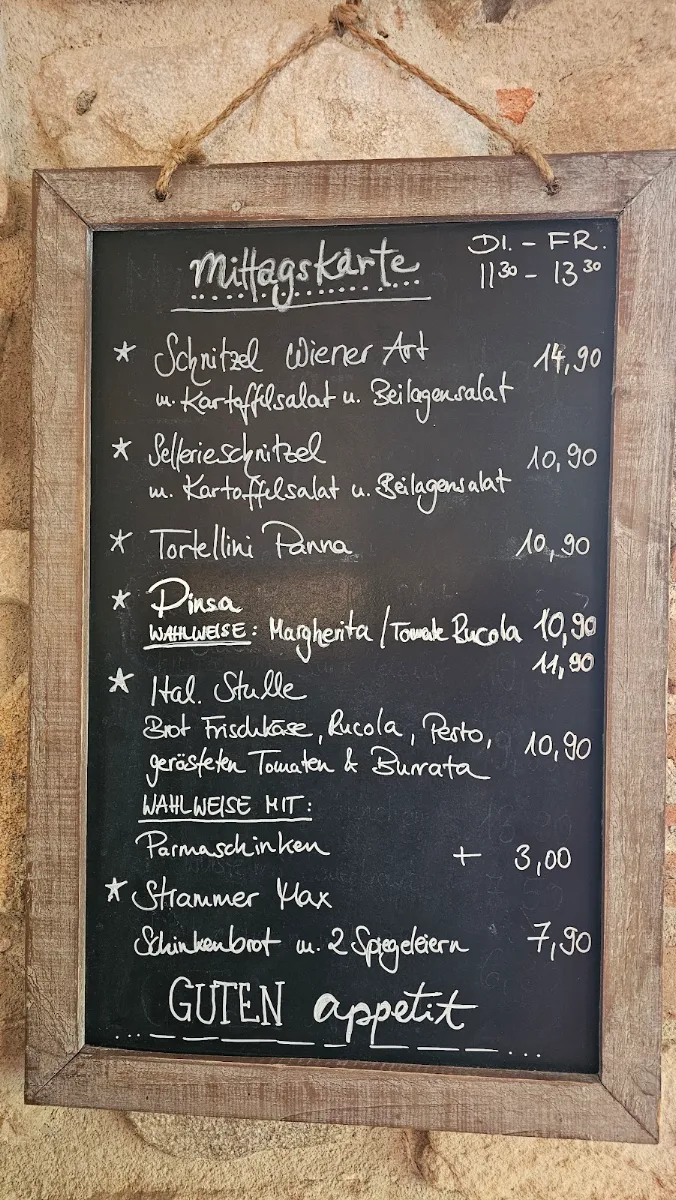 Mittagskarte
DI. - FR.
11³⁰ - 13³⁰
* Schnitzel Wiener Art 14,90
m. Kartoffelsalat u. Beilagensalat
* Sellerieschnitzel 10,90
m. Kartoffelsalat u. Beilagensalat
* Tortellini Panna 10,90
* Pinsa
WAHLWEISE: Margherita / Tomate Rucola 10,90
11,90
* Ital. Stulle
Brot Frischkäse, Rucola, Pesto,
gerösteten Tomaten & Burrata 10,90
WAHLWEISE MIT:
Parmaschinken + 3,00
* Strammer Max
Schinkenbrot m. 2 Spiegeleiern 7,90
GUTEN appetit